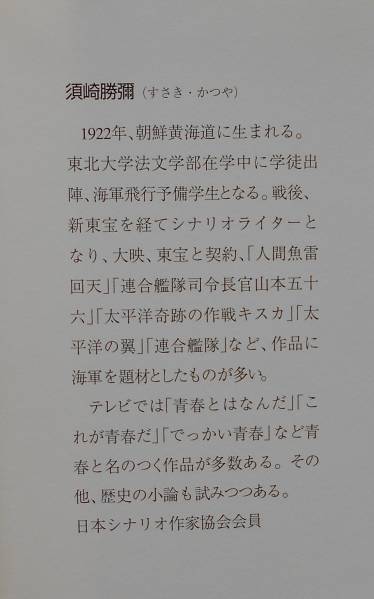 須崎勝彌（すさき・かつや）
1922年、朝鮮黄海道に生まれる。
東北大学法文学部在学中に学徒出
陣、海軍飛行予備学生となる。戦後、
新東宝を経てシナリオライターと
なり、大映、東宝と契約、「人間魚雷
回天」「連合艦隊司令長官山本五十
六」「太平洋奇跡の作戦キスカ」「太
平洋の翼」「連合艦隊」など、作品に
海軍を題材としたものが多い。
テレビでは「青春とはなんだ」「こ
れが青春だ」「でっかい青春」など青
春と名のつく作品が多数ある。その
他、歴史の小論も試みつつある。
日本シナリオ作家協会会員